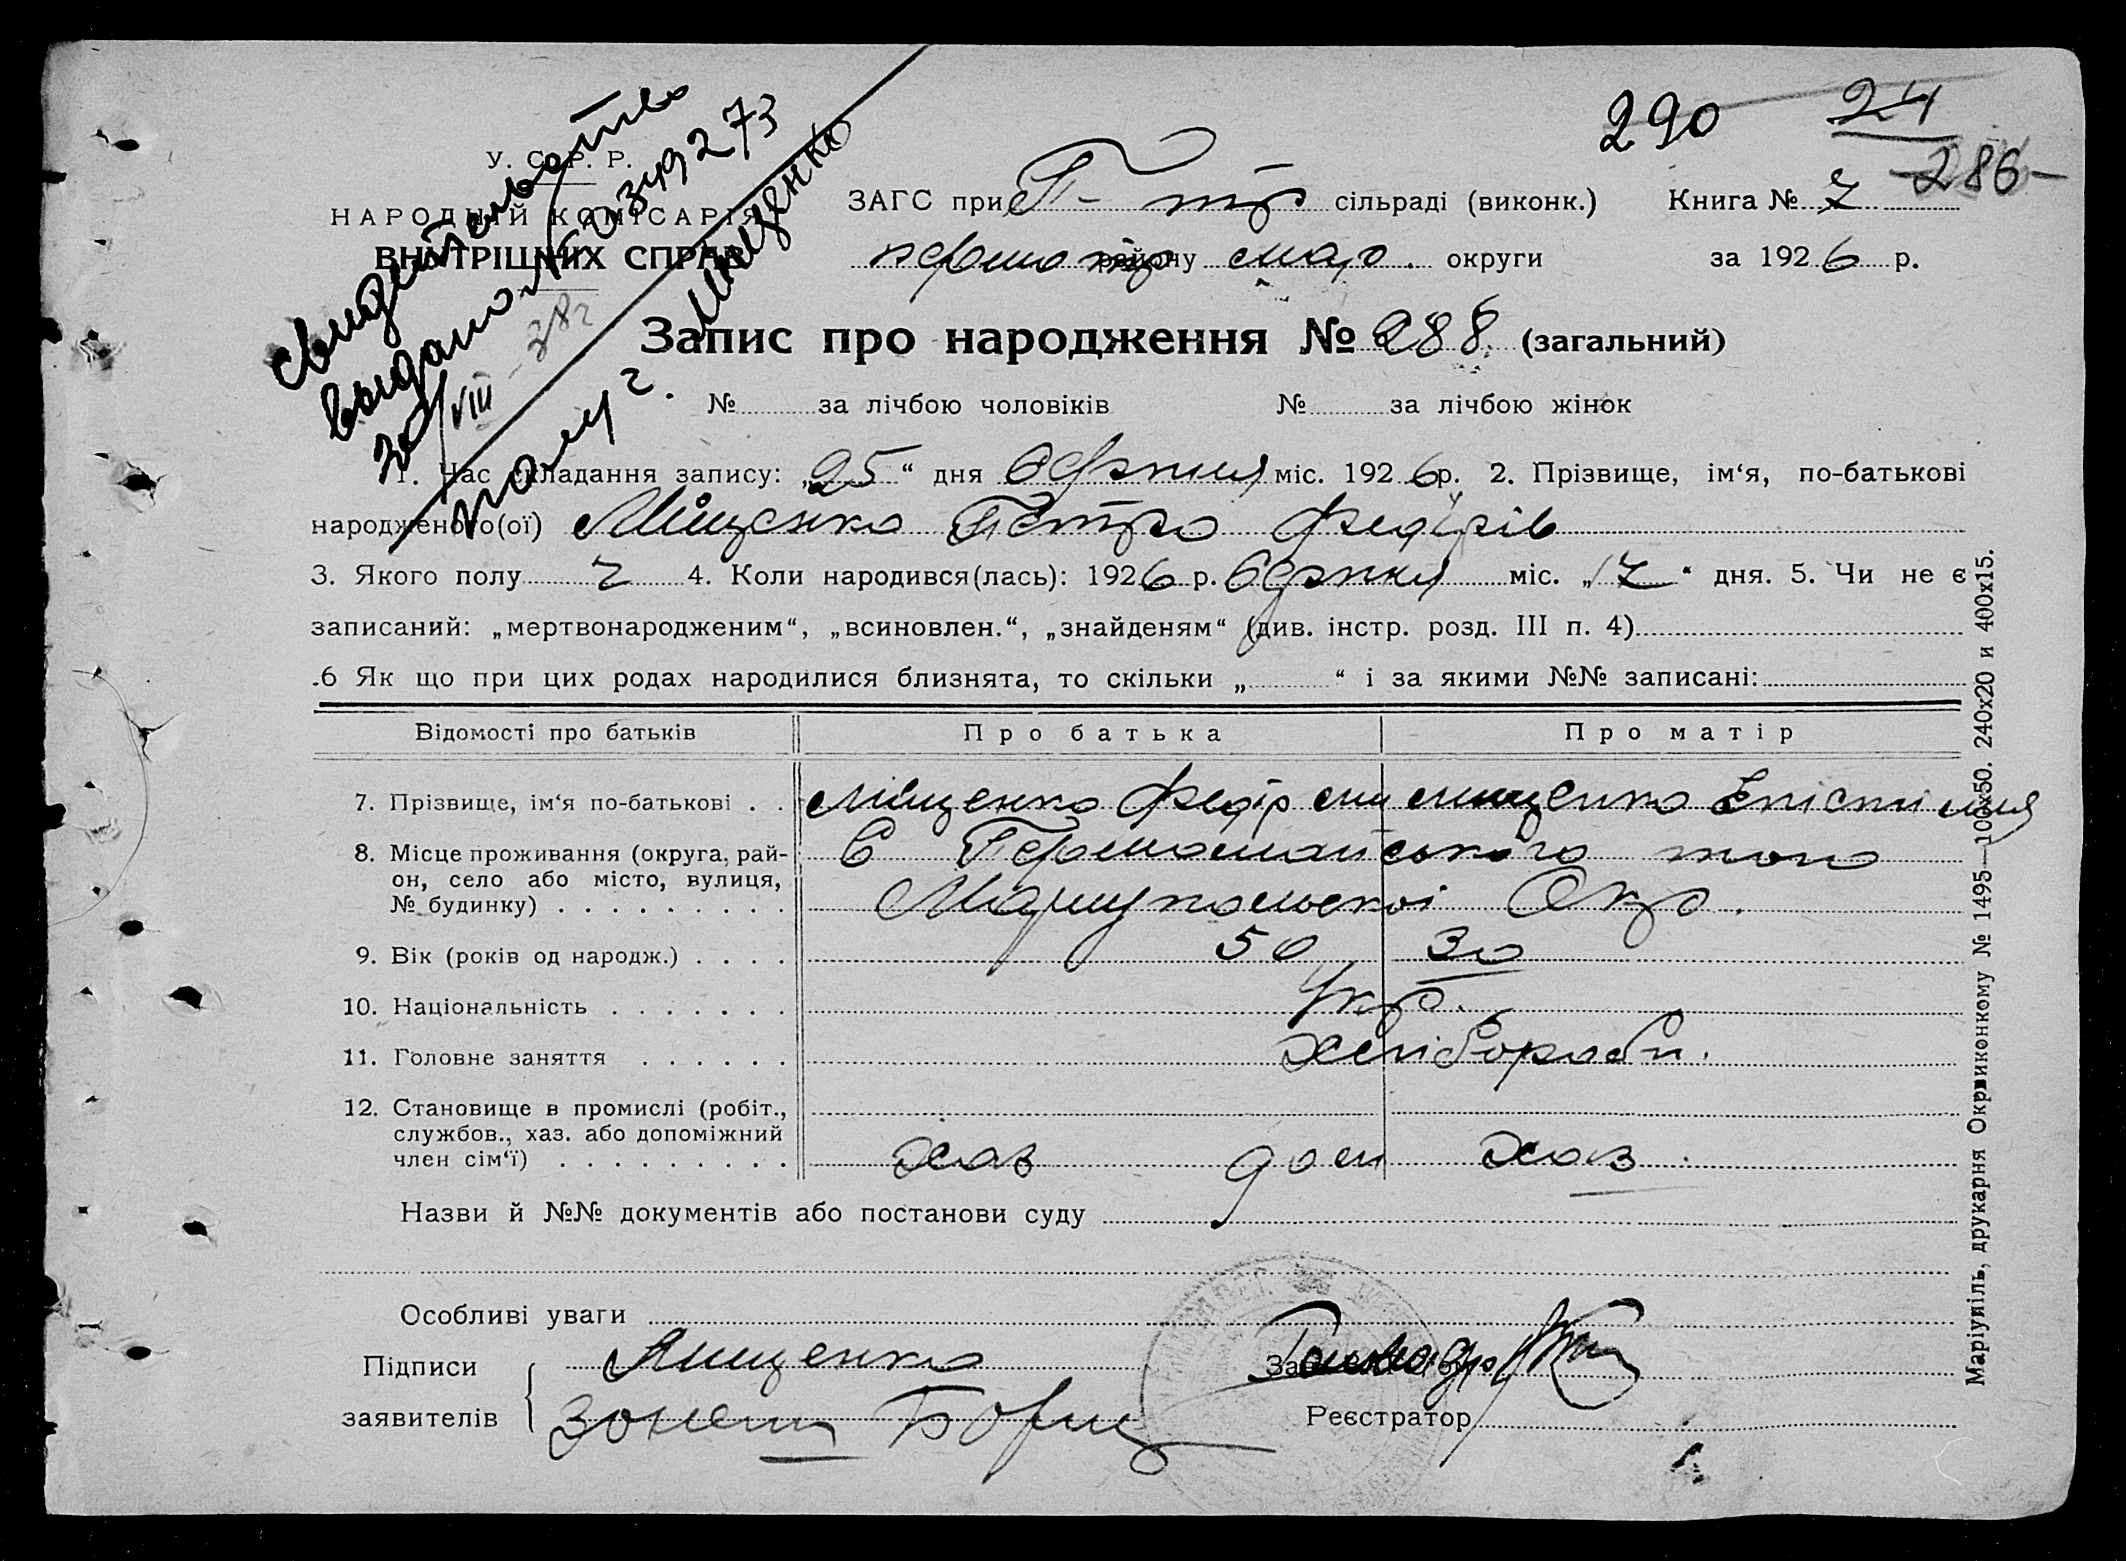 290 24
-286-
Свидетельство
выдано № 0349273
30/VIII-38г
Мищенко
У. С. Р. Р.
НАРОДНІЙ КОМІСАРІЯТ
ВНУТРІШНИХ СПРАВ
ЗАГС при П- сільраді (виконк.) Книга № 7
району мар. округи за 1926 р.
Запис про народження № 288 (загальний)
№ за лічбою чоловіків № за лічбою жінок
1. Час складання запису: „25“ дня Серпня міс. 1926 р. 2. Прізвище, ім‘я, по-батькові
народженого(ої) Міщенко Петро Федірів
3. Якого полу ч 4. Коли народився(лась): 1926 р. Серпня міс. „17“ дня. 5. Чи не є
записаний: „мертвонародженим“, „всиновлен.“, „знайденям“ (див. інстр. розд. III п. 4)
.6 Як що при цих родах народилися близнята, то скільки „ “ і за якими №№ записані:
Відомості про батьків Про батька Про матір
7. Прізвище, ім‘я по-батькові . . Міщенко Федір Мищенко
8. Місце проживання (округа, рай-
он, село або місто, вулиця,
№ будинку) . . . . . . . . .
С Першомайського
Маріупольскої Окр.
9. Вік (років од народж.) . . . . 50 30
10. Національність . . . . . . . Укр.
11. Головне заняття . . . . . . Хліборобн.
12. Становище в промислі (робіт.,
службов., хаз. або допоміжний
член сім‘ї) . . . . . . . . . хаз дом хаз.
Назви й №№ документів або постанови суду
Особливі уваги
Підписи Мищенко
заявителів Борщ Реєстратор
Маріупіль, друкарня Окрвиконкому № 1495—100х50. 240х20 и 400х15.